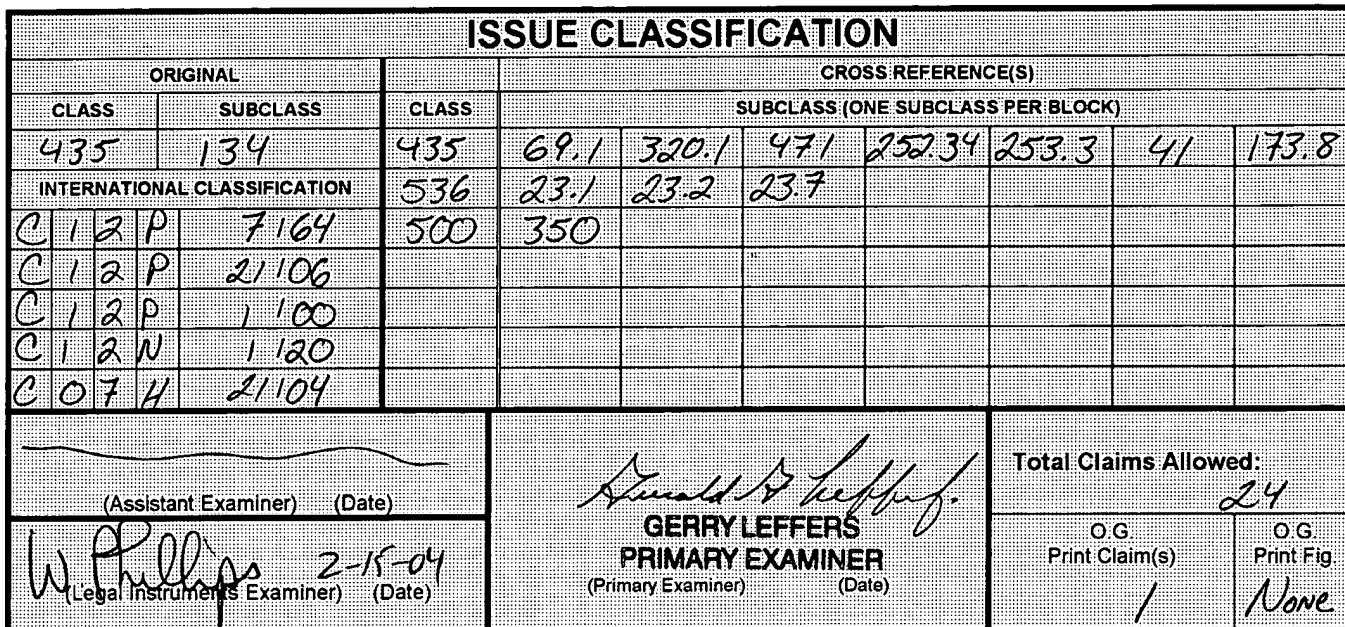 ISSUE CLASSIFICATION
ORIGINAL CROSS REFERENCE(S)
CLASS SUBCLASS CLASS SUBCLASS (ONE SUBCLASS PER BLOCK)
435 134 435 69.1 320.1 471 252.34 253.3 41 173.8
INTERNATIONAL CLASSIFICATION 536 23.1 23.2 23.7
C 1 2 P 7/64 500 350
C 1 2 P 21/06
C 1 2 P 1/00
C 1 2 N 1/20
C 0 7 H 21/04
(Assistant Examiner) (Date)
W. Phillips 2-15-04
(Legal Instruments Examiner) (Date)
GERRY LEFFERS
PRIMARY EXAMINER
(Primary Examiner) (Date)
Total Claims Allowed:
24
O.G. Print Claim(s)
1
O.G. Print Fig.
None